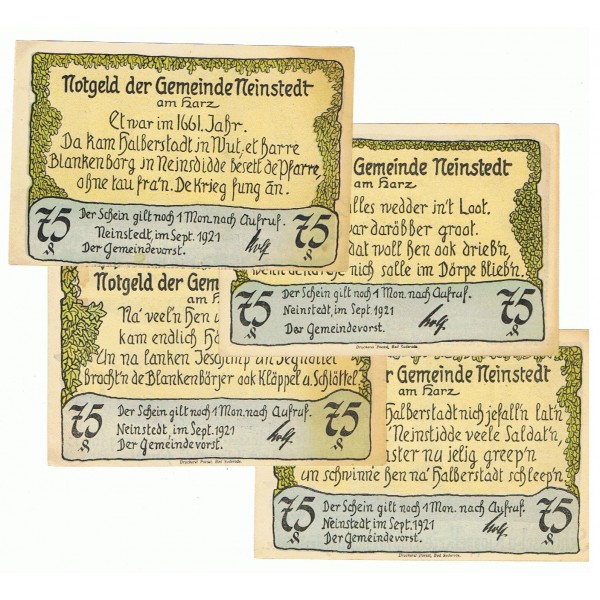 Notgeld der Gemeinde Neinstedt
am Harz
Et war im 1661. Jahr.
Da kam Halberstadt in Wut, et harre
Blankenborg in Neinsdidde besett de Pfarre,
ohne tau fra'n. De Krieg fung än.
75 Der Schein gilt noch 1 Mon. nach Aufruf. 75
Neinstedt, im Sept. 1921
Der Gemeindevorst.
Gemeinde Neinstedt
am Harz
lles wedder in't Loot.
var darôbber groot.
dat woll hen ook drieb'n
nich salle im Dörpe blieb'n.
75 Der Schein gilt noch 1 Mon. nach Aufruf. 75
Neinstedt, im Sept. 1921
Der Gemeindevorst.
Notgeld der Gem
am Harz
Na' veel'n Hen u
kam endlich Hö
Un na lanken
brocht'n de Blankenbörjer ook Kläppel u. Schlöttel
75 Der Schein gilt noch 1 Mon. nach Aufruf. 75
Neinstedt, im Sept. 1921
Der Gemeindevorst.
der Gemeinde Neinstedt
am Harz
Halberstadt nich jefall'n lat'n
Neinstidde veele Saldat'n,
ster nu jelig greep'n
un schwinne hen na' Halberstadt schleep'n.
75 Der Schein gilt noch 1 Mon. nach Aufruf. 75
Neinstedt, im Sept. 1921
Der Gemeindevorst.